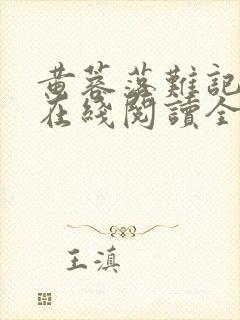 黄蓉落難記
在綫閱讀全
王滇